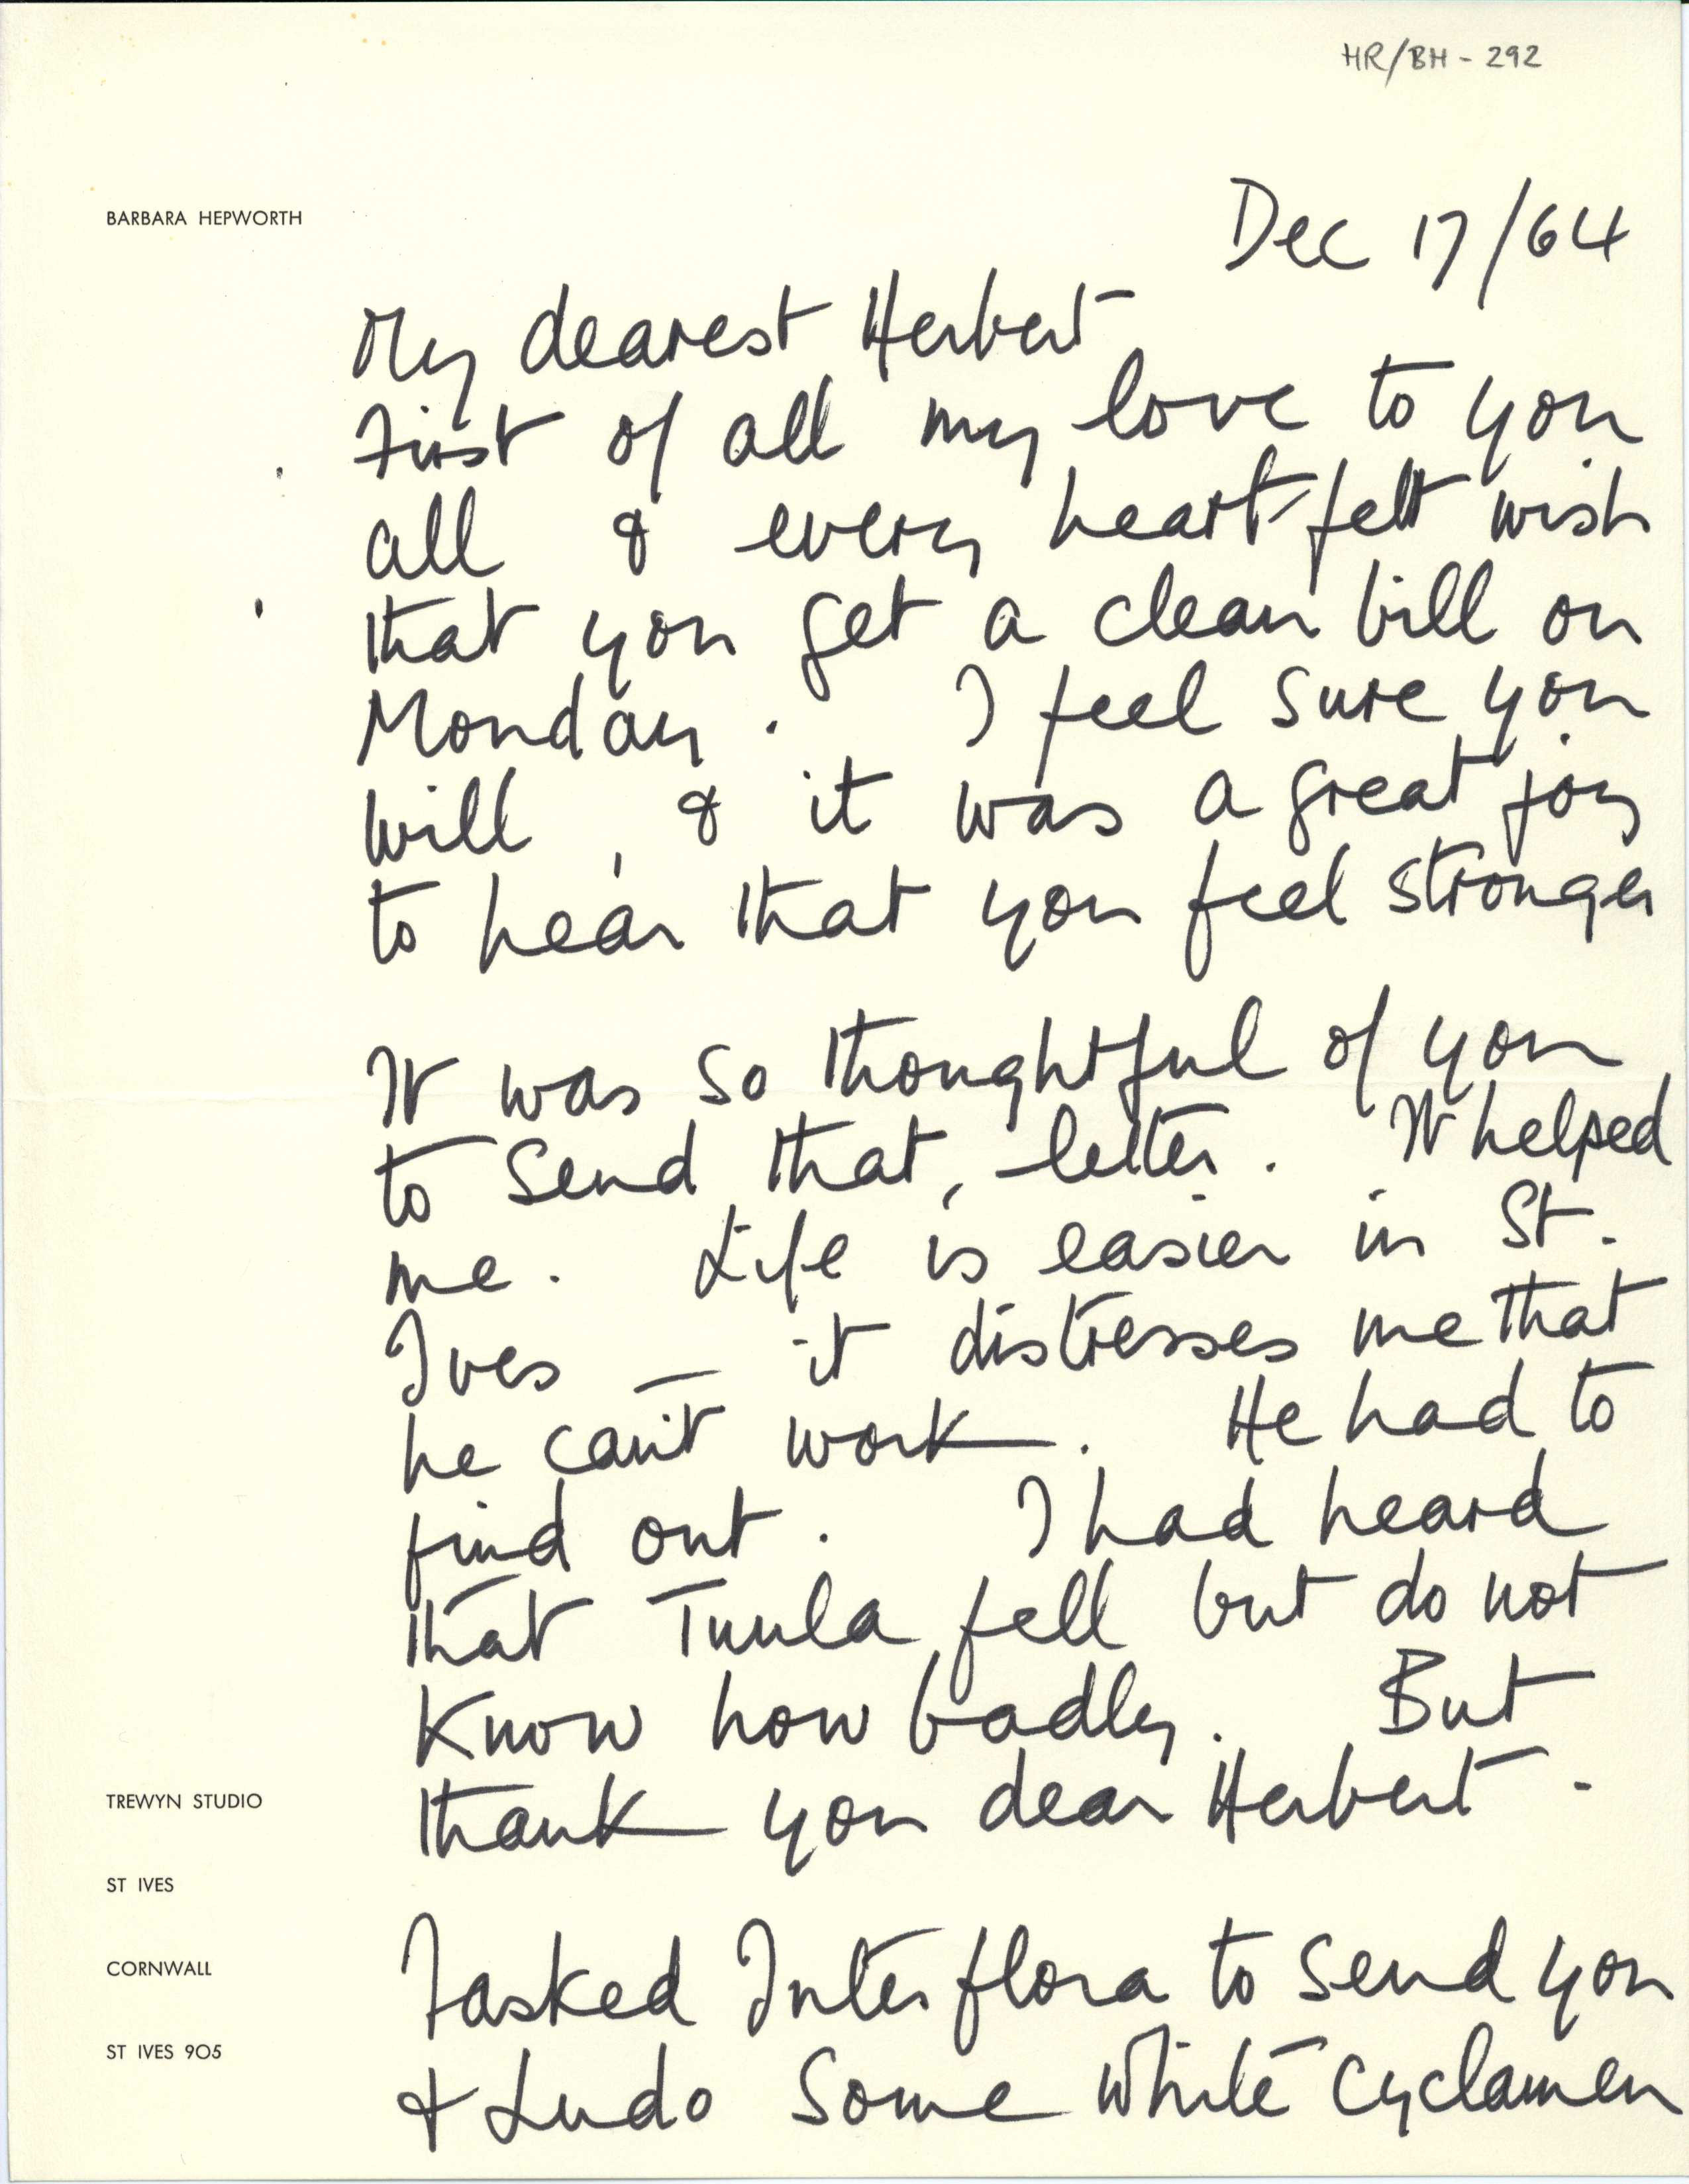 HR/BH - 292
BARBARA HEPWORTH
Dec 17/64
My dearest Herbert
First of all my love to you
all & every heart-felt wish
that you get a clean bill on
Monday. I feel sure you
will, & it was a great joy
to hear that you feel stronger
It was so thoughtful of you
to send that letter. It helped
me. Life is easier in St.
Ives — it distresses me that
he can't work. He had to
find out. I had heard
that Tuula fell but do not
know how badly. But
thank you dear Herbert -
I asked Interflora to send you
& Ludo some white cyclamen
TREWYN STUDIO
ST IVES
CORNWALL
ST IVES 905